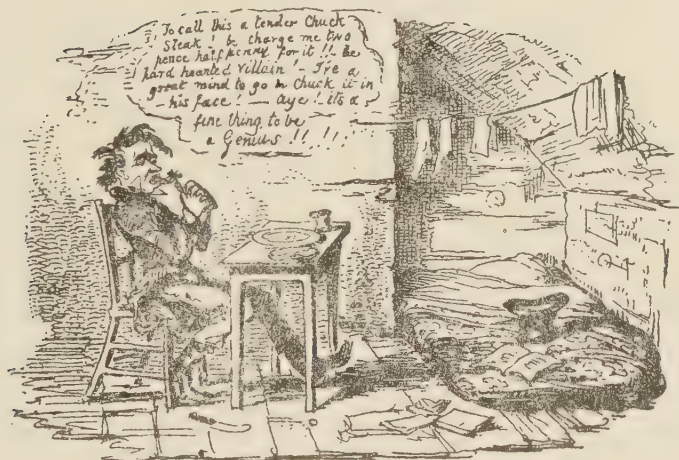 To call this a tender Chuck
Steak! & charge me two
pence half penny for it!! the
hard hearted Villain! - I've a
great mind to go & Chuck it in
his face! - Aye! its a
fine thing to be
a Genius!!!!!